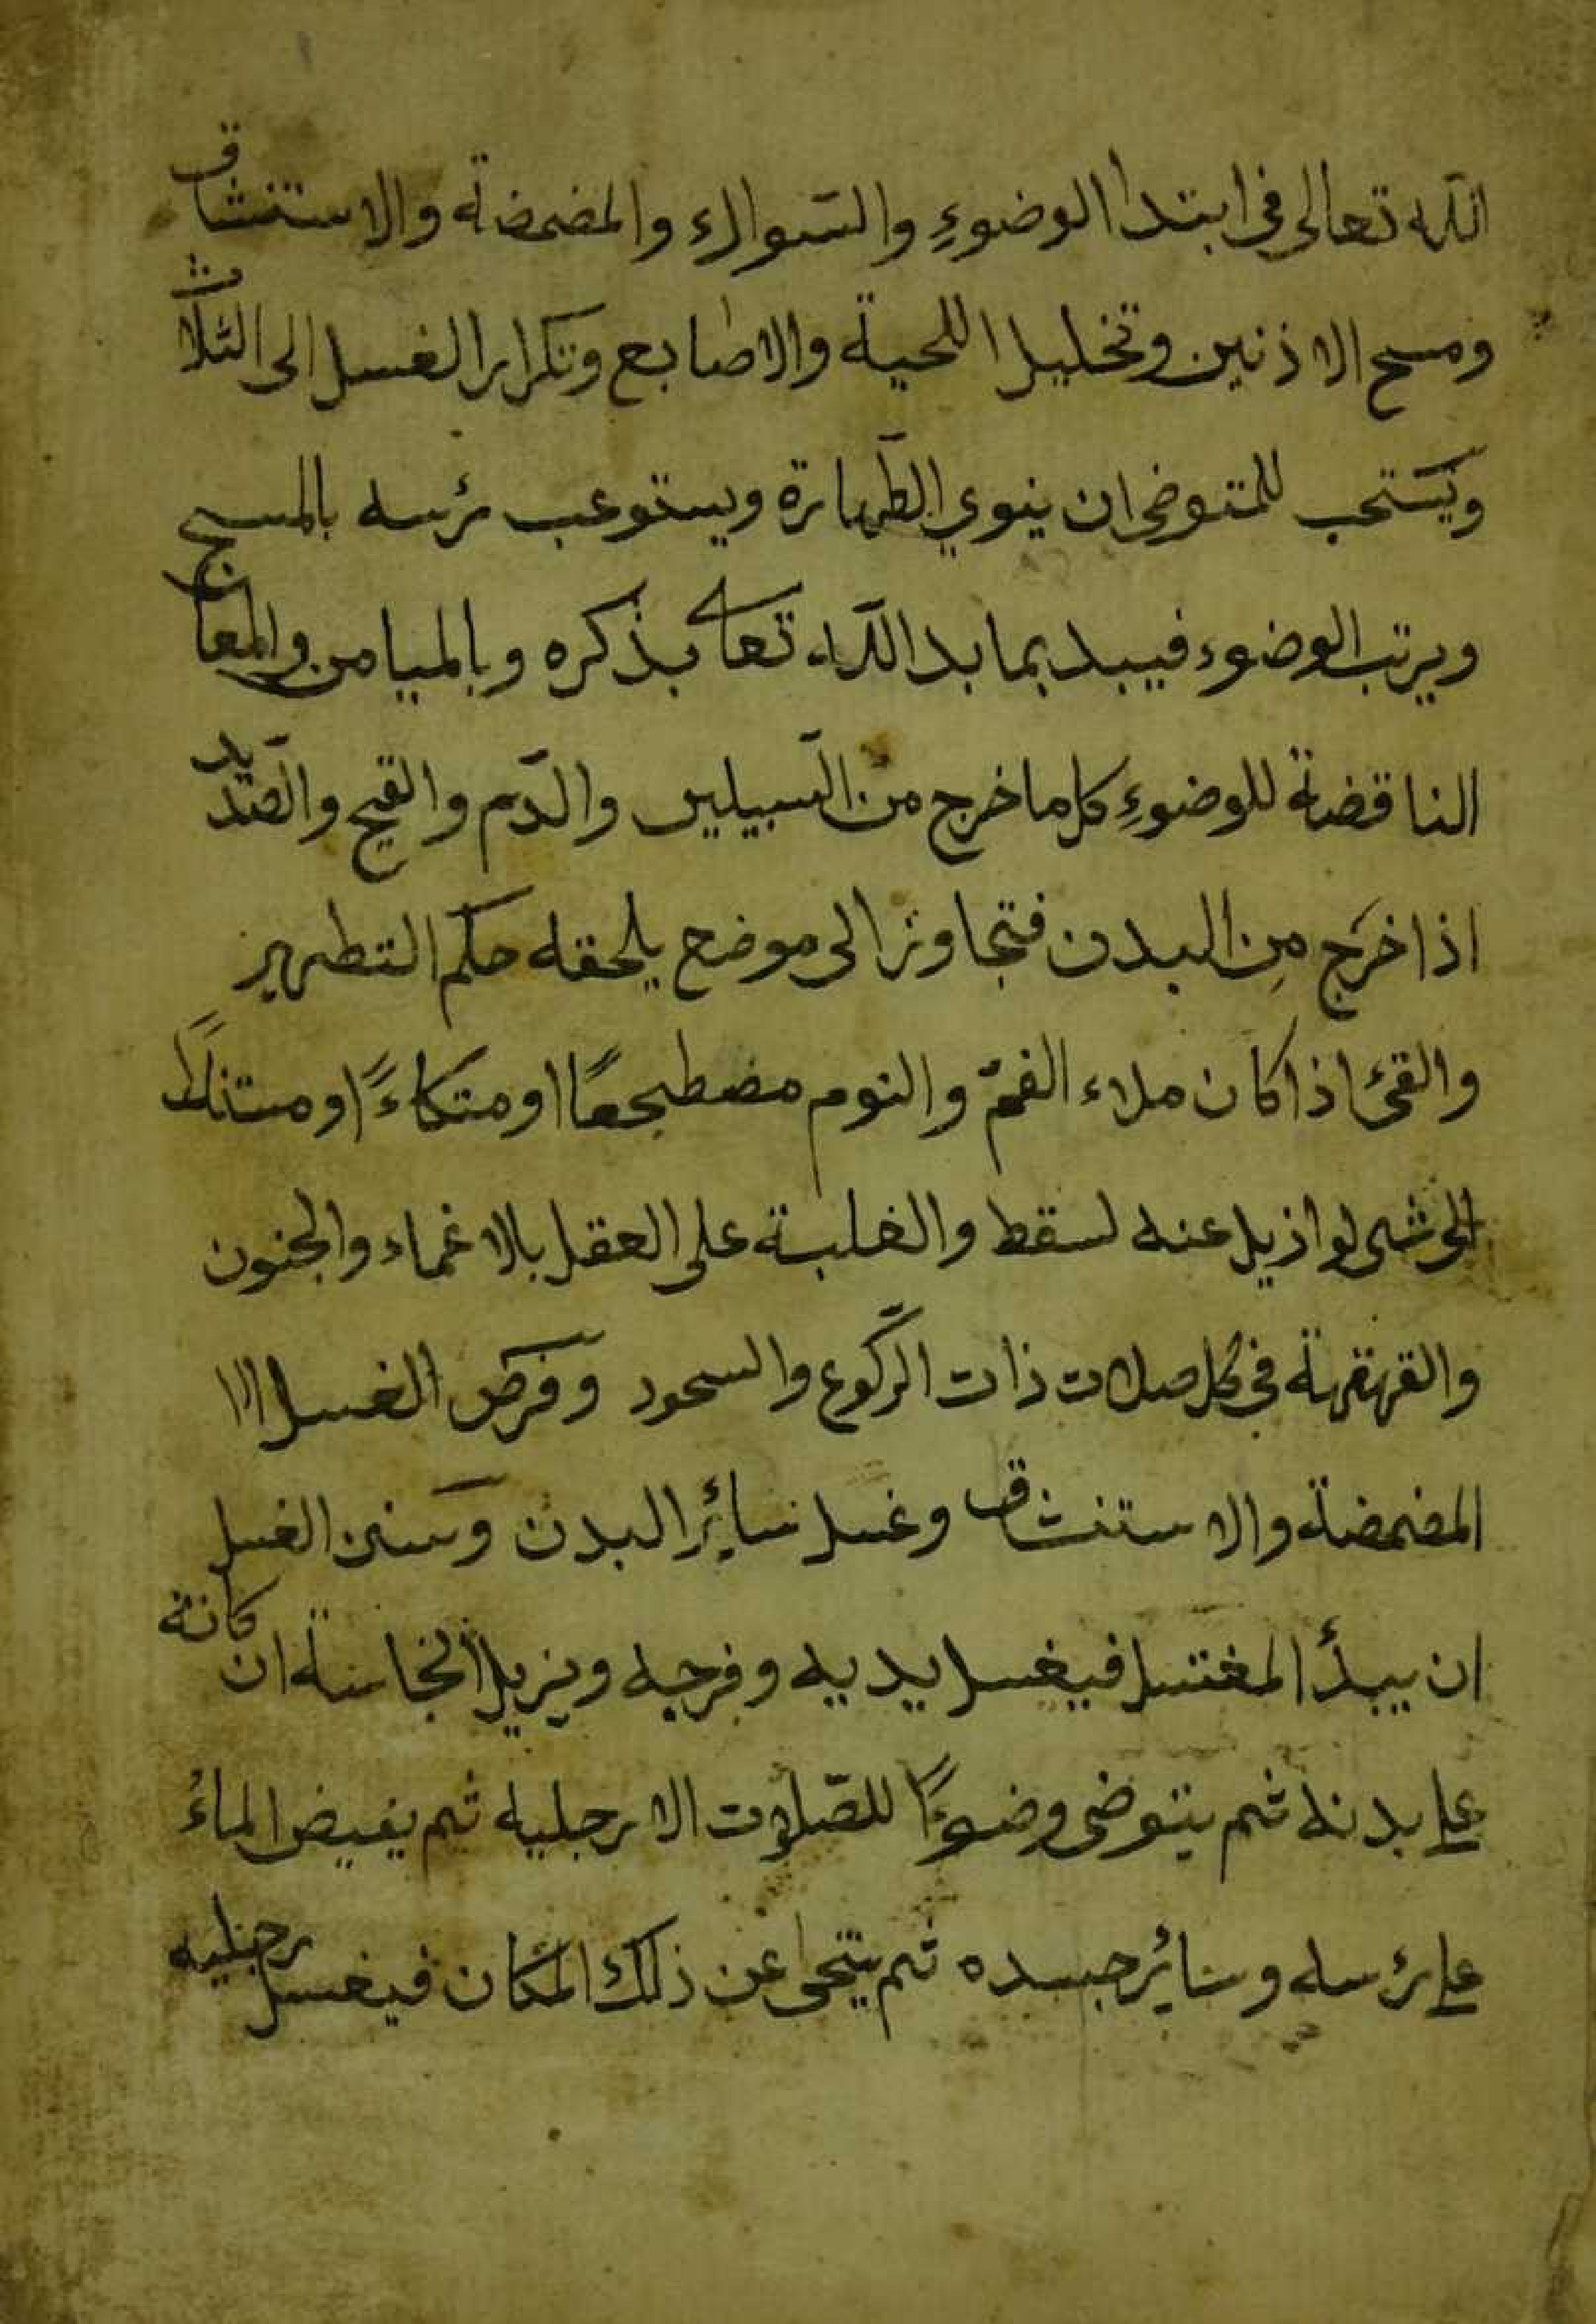 الله تعالى في ابتدا الوضوءِ والسّواك والمضمضة والاستنشاق
ومسح الاذنين وتخليل اللحية والاصابع وتكرار الغسل الى الثلاث
ويستحب للمتوضى ان ينوي الطهارة ويستوعب رئسه بالمسح
ويرتب الوضوء فيبد بما بد الله تعا بذكره وبالميامن والمعا
الناقضة للوضوءِ كل ما خرج من السّبيلين والدّم والقيح والصّديد
اذا خرَج مِن البدن فتجاوز الى موضع يلحقه حكم التطهير
والقئ اذا كان ملاء الفمّ والنوم مضطجعًا او متكاءً او مستندًا
الى شى لو ازيل عنه لسقط والغلبة على العقل بالاغماء والجنون
والقهقهة في كل صلات ذات الرّكوع والسجود وفرض الغسل
المضمضة والاستنشاق وغسل سائر البدن وسنن الغسل
ان يبدأ المغتسل فيغسل يديه وفرجه ويزيل النجاسة ان كانة
على بدنه ثم يتوضى وضوءًا للصّلوت الا رجليه ثم يفيض الماءُ
على رئسه وسائر جسده ثم يتنحى عن ذلك المكان فيغسل رجليه